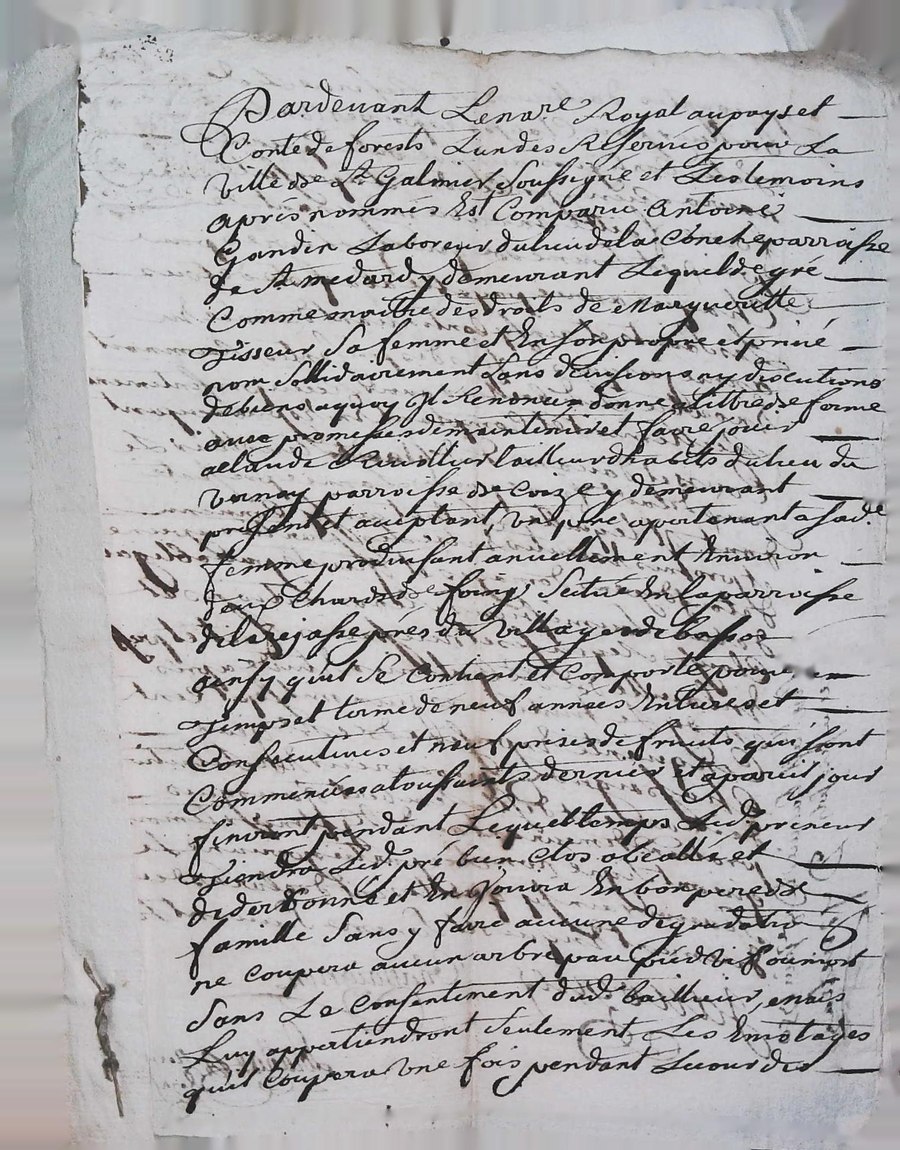 Pardevant Le nore Royal au pays et
Conté de forests Lun des Reservés pour La
ville de St Galmier Soussigné et Les temoins
apres nommés Est Comparu Antoine
Gandin Laboreur du lieu de la parroisse
de St medard y demeurant Lequel de gré
Comme maitre des droits de Margueritte
Tisseur Sa femme et En son propre et privé
nom Sollidairement Sans divisions ny discutions
de biens a quoy Il Renonce donne a tittre de ferme
avec promesses de maintenir et faire jouir
a Claude tailleur dhabits du lieu du
vernay parroisse de Coize y demeurant
present et aceptant un pré apartenant a Sade
femme produisant anuellement Environ
deux Chards de foing Scitué En la parroisse
de larajasse prés du village de
ainsy quil Se Contient et Comporte pour
Temps et terme de neuf années Entieres et
Consecutives et neuf prises de fruits qui sont
Commencées a toussaints dernier et a pareil jour
finiront pendant Lequel temps Led. preneur
Tiendra Led. pré bien Clos et
et En Jouira En bon pere de
famille Sans y faire aucune degradatio
ne coupera aucun arbre par pied vif ou mort
Sans Le Consentement dud. bailleur, mais
Luy appartiendront Seulement Les Emotages
quil Coupera une fois pendant Le cour des